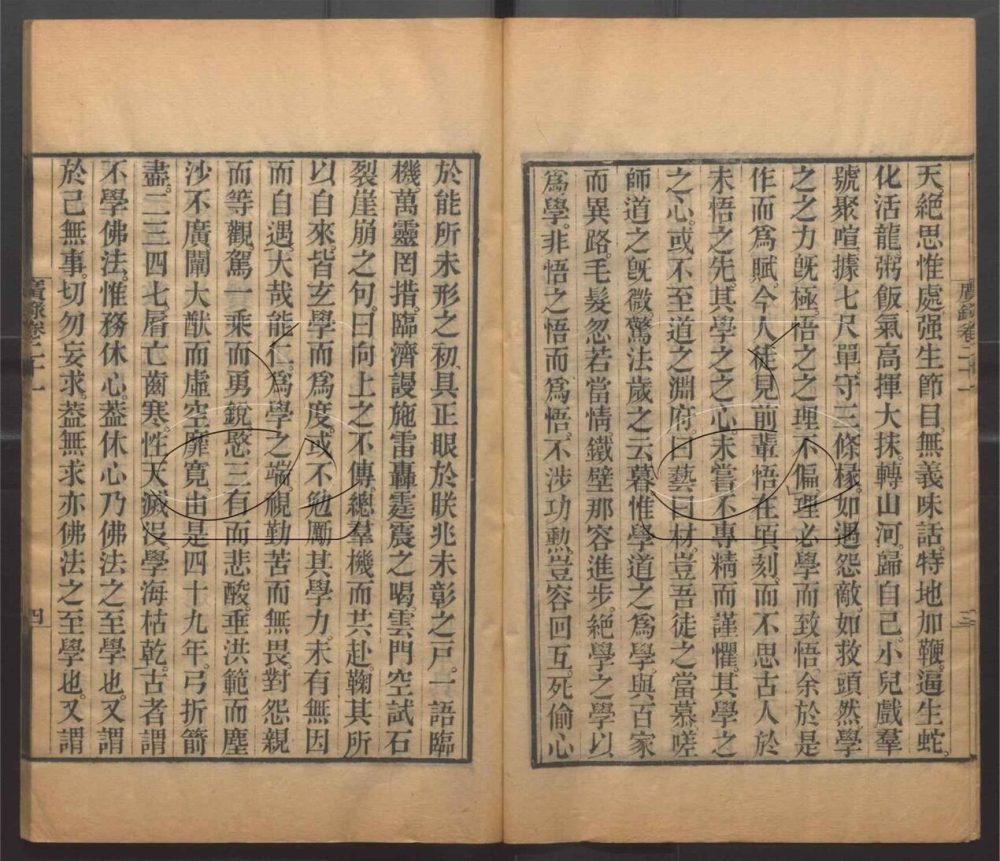 天絕思惟處强生節目無義味話特地加鞭逼生蛇
化活龍粥飯氣高揮大抹轉山河歸自己小兒戲羣
號聚喧據七尺單守三條椽如遇怨敵如救頭然學
之之力旣極悟之之理不偏理必學而致悟余於是
作而爲賦今人徒見前輩悟在頃刻而不思古人於
未悟之先其學之之心未嘗不專精而謹懼其學之
之心或不至道之淵府曰藝曰材豈吾徒之當慕嗟
師道之旣微驚法歲之云暮惟學道之爲學與百家
而異路毛髮忽若當情鐵壁那容進步絕學之學以
爲學非悟之悟而爲悟不涉功勲豈容回互死偷心
廣錄卷二十一
三
於能所未形之初具正眼於朕兆未彰之戸一語臨
機萬靈罔措臨濟謾施雷轟霆震之喝雲門空試石
裂崖崩之句曰向上之不傳總羣機而共赴鞠其所
以自來皆玄學而爲度或不勉勵其學力未有無因
而自遇大哉能仁爲學之端視勤苦而無畏對怨親
而等觀駕一乘而勇銳愍三有而悲酸垂洪範而塵
沙不廣闡大猷而虛空靡寛由是四十九年弓折箭
盡二三四七脣亡齒寒性天滅沒學海枯乾古者謂
不學佛法惟務休心葢休心乃佛法之至學也又謂
於己無事切勿妄求葢無求亦佛法之至學也又謂
廣錄卷二十一
四